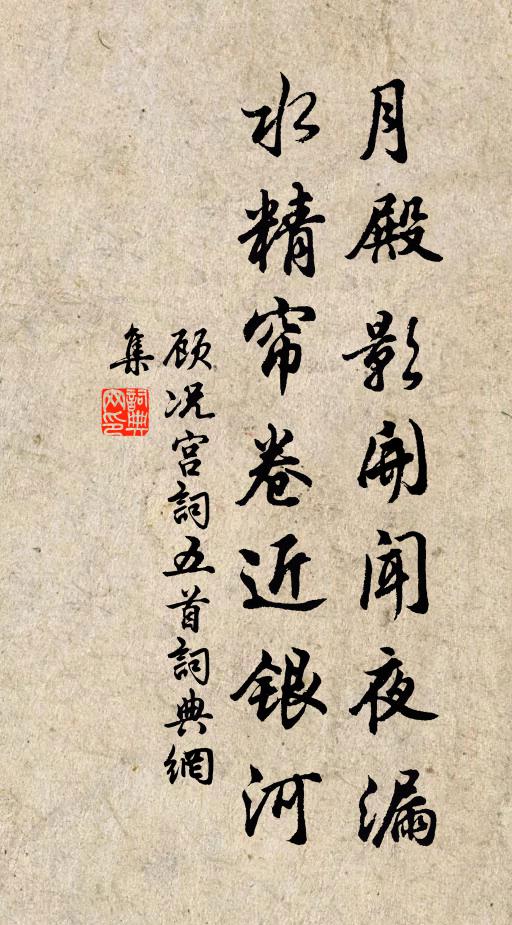 月殿影開闻夜漏
水精帘卷近银河
顾况宫詞五首詞典網
集
詞典
网印